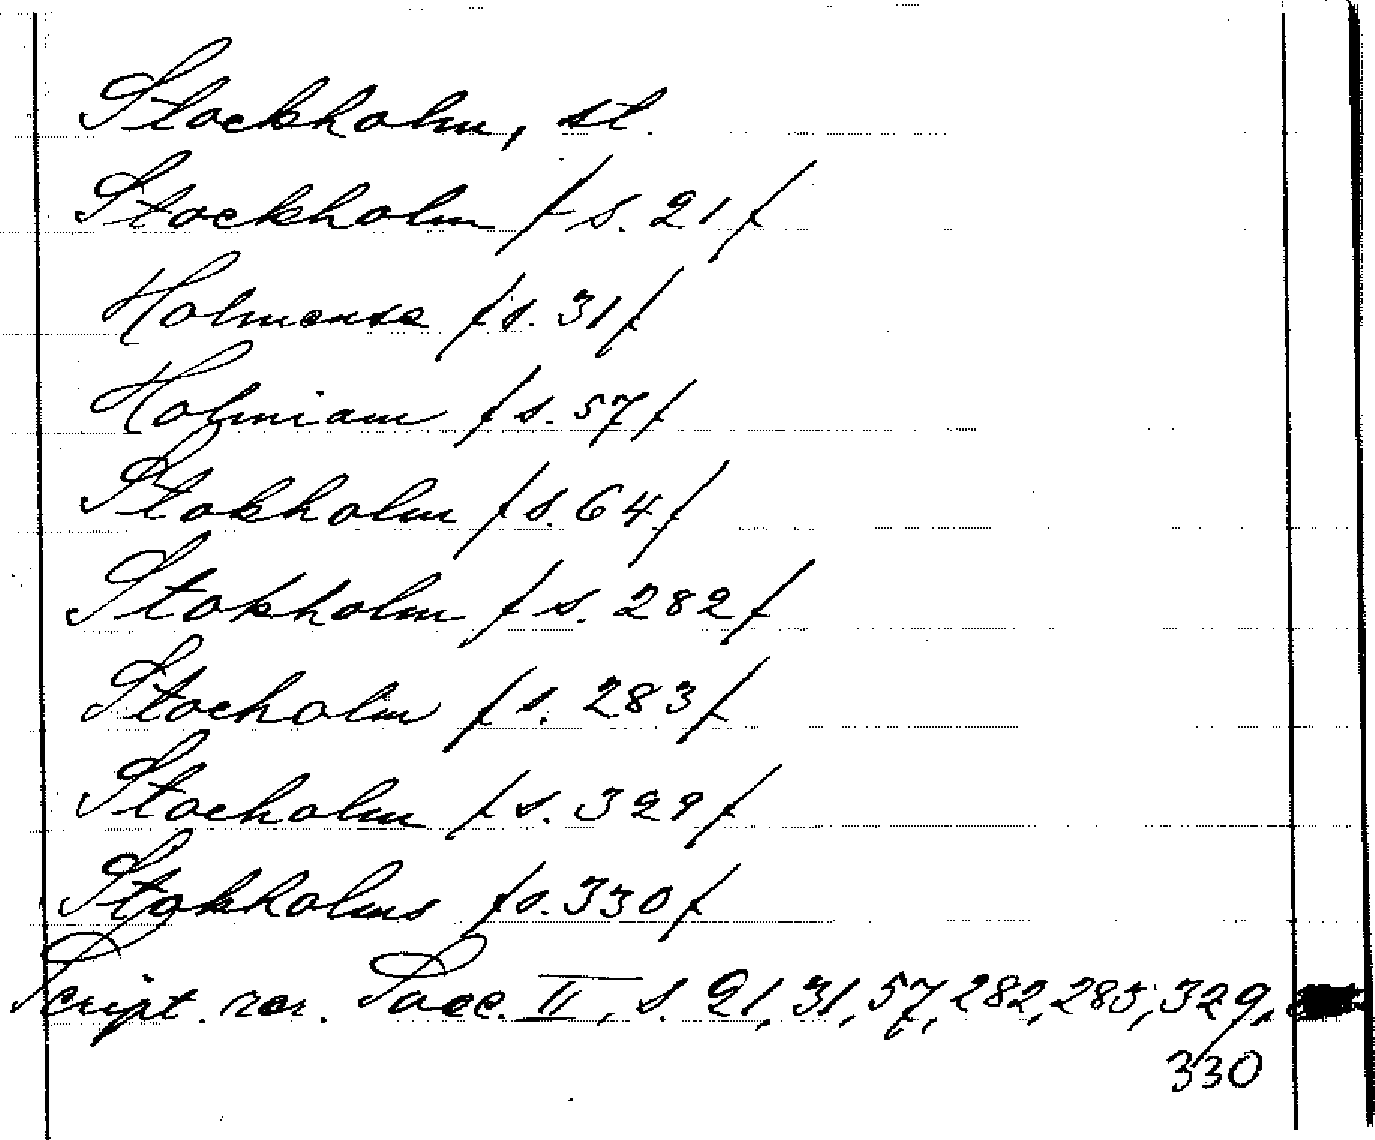 Stockholm, st.
Stockholm /s. 21/
Holmense /s. 31/
Holmiam /s. 57/
Stokholm /s. 64/
Stokholm /s. 282/
Stocholm /s. 283/
Stocholm /s. 329/
Stokholms /s. 330/
Script. rer. Svec. II, s. 21, 31, 57, 282, 283, 329,
330